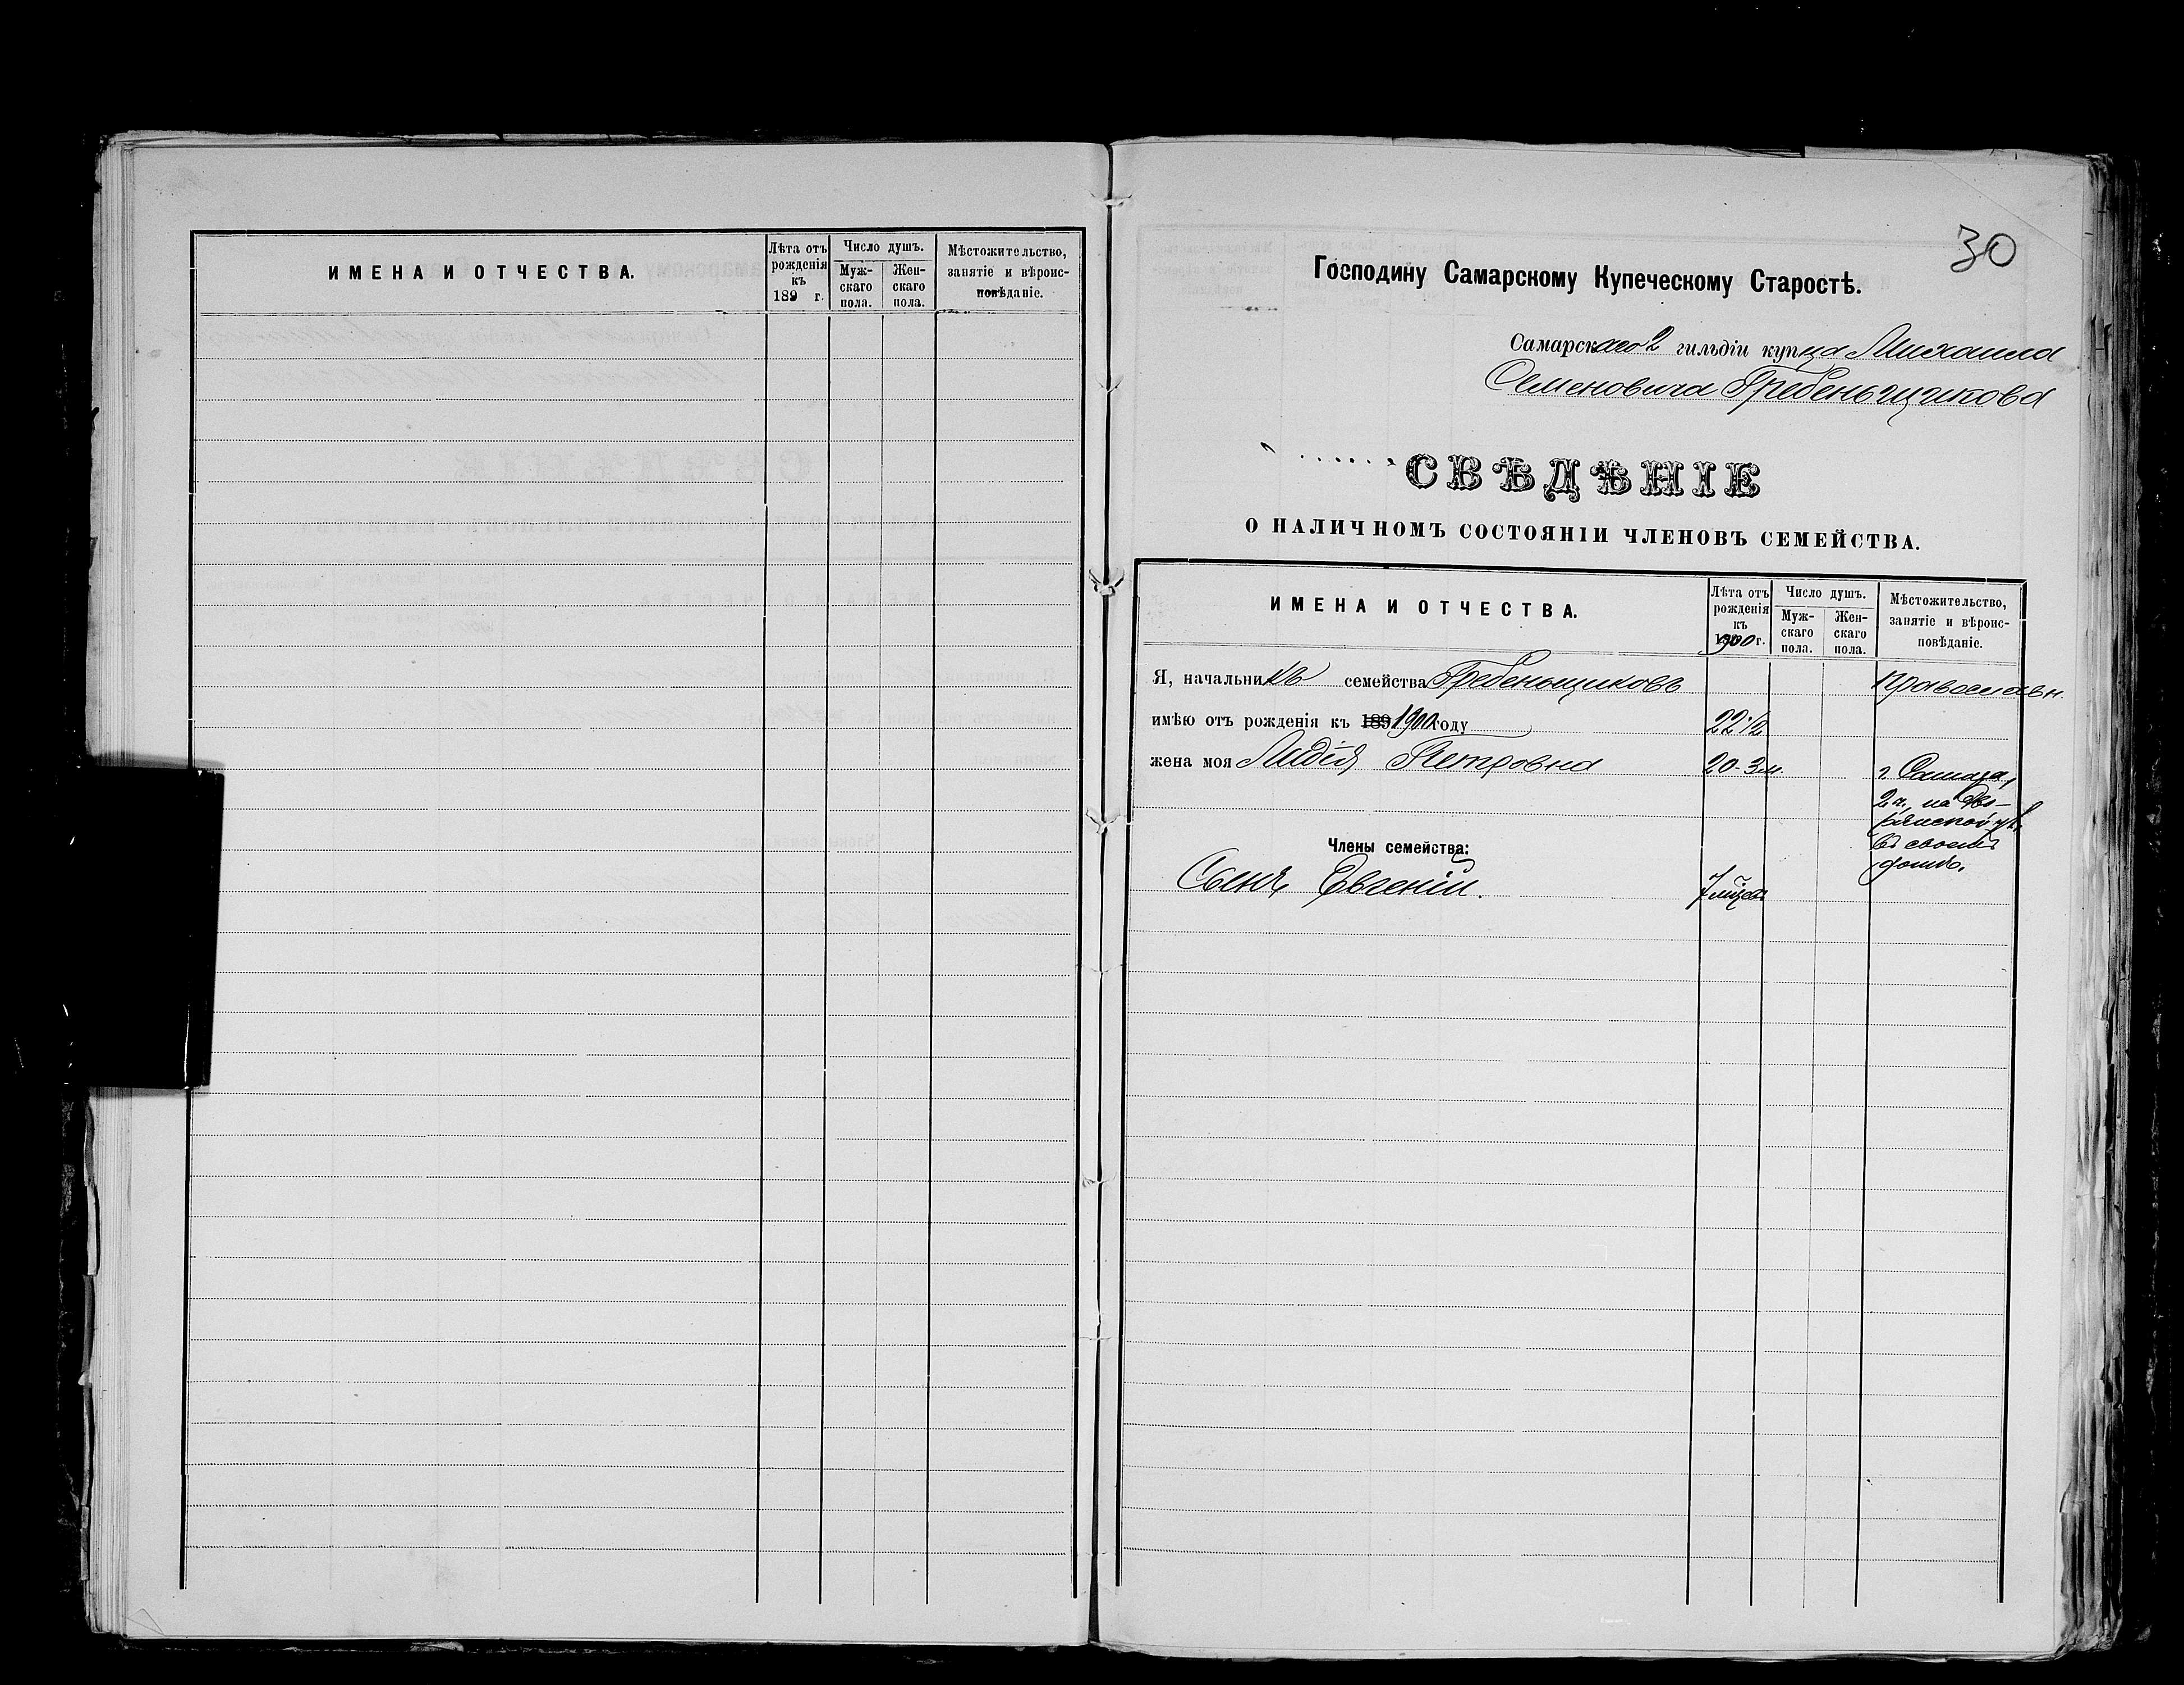 ИМЕНА И ОТЧЕСТВА.
Лѣта отъ рожденія къ 189 г.
Число душъ.
Мужскаго пола.
Женскаго пола.
Мѣстожительство, занятіе и вѣроисповѣданіе.
30
Господину Самарскому Купеческому Старостѣ.
Самарскаго 2 гильдіи купца Михаила
Семеновича Гребеньщикова
СВѢДѢНІЕ
О НАЛИЧНОМЪ СОСТОЯНІИ ЧЛЕНОВЪ СЕМЕЙСТВА.
ИМЕНА И ОТЧЕСТВА.
Лѣта отъ рожденія къ 1900 г.
Число душъ.
Мужскаго пола.
Женскаго пола.
Мѣстожительство, занятіе и вѣроисповѣданіе.
Я, начальникъ семейства Гребеньщиковъ
Православн.
имѣю отъ рожденія къ 189 1900 году 22 1/2
жена моя Лидія Петровна 20-3м.
г. Самара,
2 ч., на Дво-
рянской ул.
въ своемъ
домѣ.
Члены семейства:
Сынъ Евгеній. 7 мѣсяц